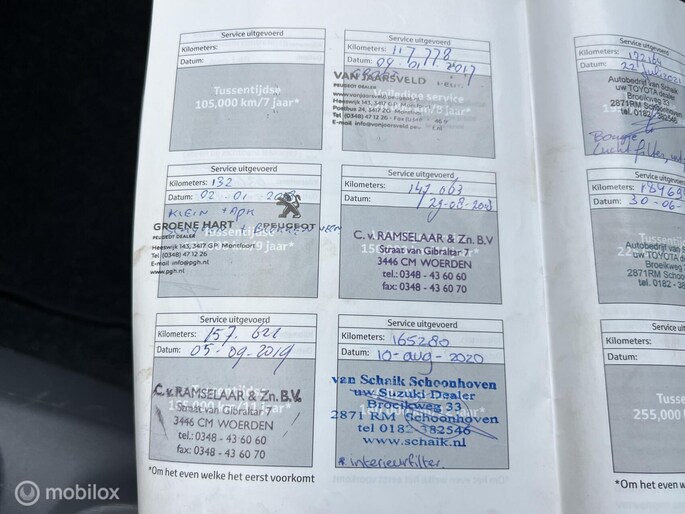 Service uitgevoerd
Kilometers:
Datum:
Tussentijdse
105,000 km/7 jaar*
Service uitgevoerd
Kilometers: 117 778
Datum: 09 01 2017
GROOT
VAN JAARSVELD
PEUGEOT DEALER
Volledige service
Heeswijk 143, 3417 GP
Postbus 24, 3417 ZG
Tel (0348) 47 12 26 - Fax
E-mail info@vanjaarsveld
Service uitgevoerd
Kilometers: 132
Datum: 02 - 01
KLEIN + APK
GROENE HART PEUGEOT
PEUGEOT DEALER
Heeswijk 143, 3417 GP Montfoort
Tel (0348) 47 12 26
E-mail info@pgh.nl
www.pgh.nl
Service uitgevoerd
Kilometers:
Datum: 29-08-
C. v. RAMSELAAR & Zn. B.V
Straat van Gibraltar 7
3446 CM WOERDEN
tel.: 0348 - 43 60 60
fax: 0348 - 43 60 70
Service uitgevoerd
Kilometers: 157. 621
Datum: 05-09-2019
Tussentijdse
C. v. RAMSELAAR & Zn. B.V.
Straat van Gibraltar 7
3446 CM WOERDEN
tel.: 0348 - 43 60 60
fax: 0348 - 43 60 70
Service uitgevoerd
Kilometers: 165280
Datum: 10-aug-2020
van Schaik Schoonhoven
uw Suzuki Dealer
Broeikweg 33
2871 RM Schoonhoven
tel 0182-382546
www.schaik.nl
* interieurfilter.
*Om het even welke het eerst voorkomt
Service uitgevoerd
Kilometers: 172164
Datum: 22 juli 2021
Autobedrijf van Schaik
uw TOYOTA dealer
Broeikweg 33
2871RM Schoonhoven
tel. 0182 - 382546
Bougie
Luchtfilter,
Service uitgevoerd
Kilometers:
Datum: 30-06-
Autobedrijf van S
uw TOYOTA de
Broeikweg
2871RM Schoonh
tel. 0182 - 38
Service uit
Kilometers:
Datum:
Tussent
255,000
*Om het even w
mobilox